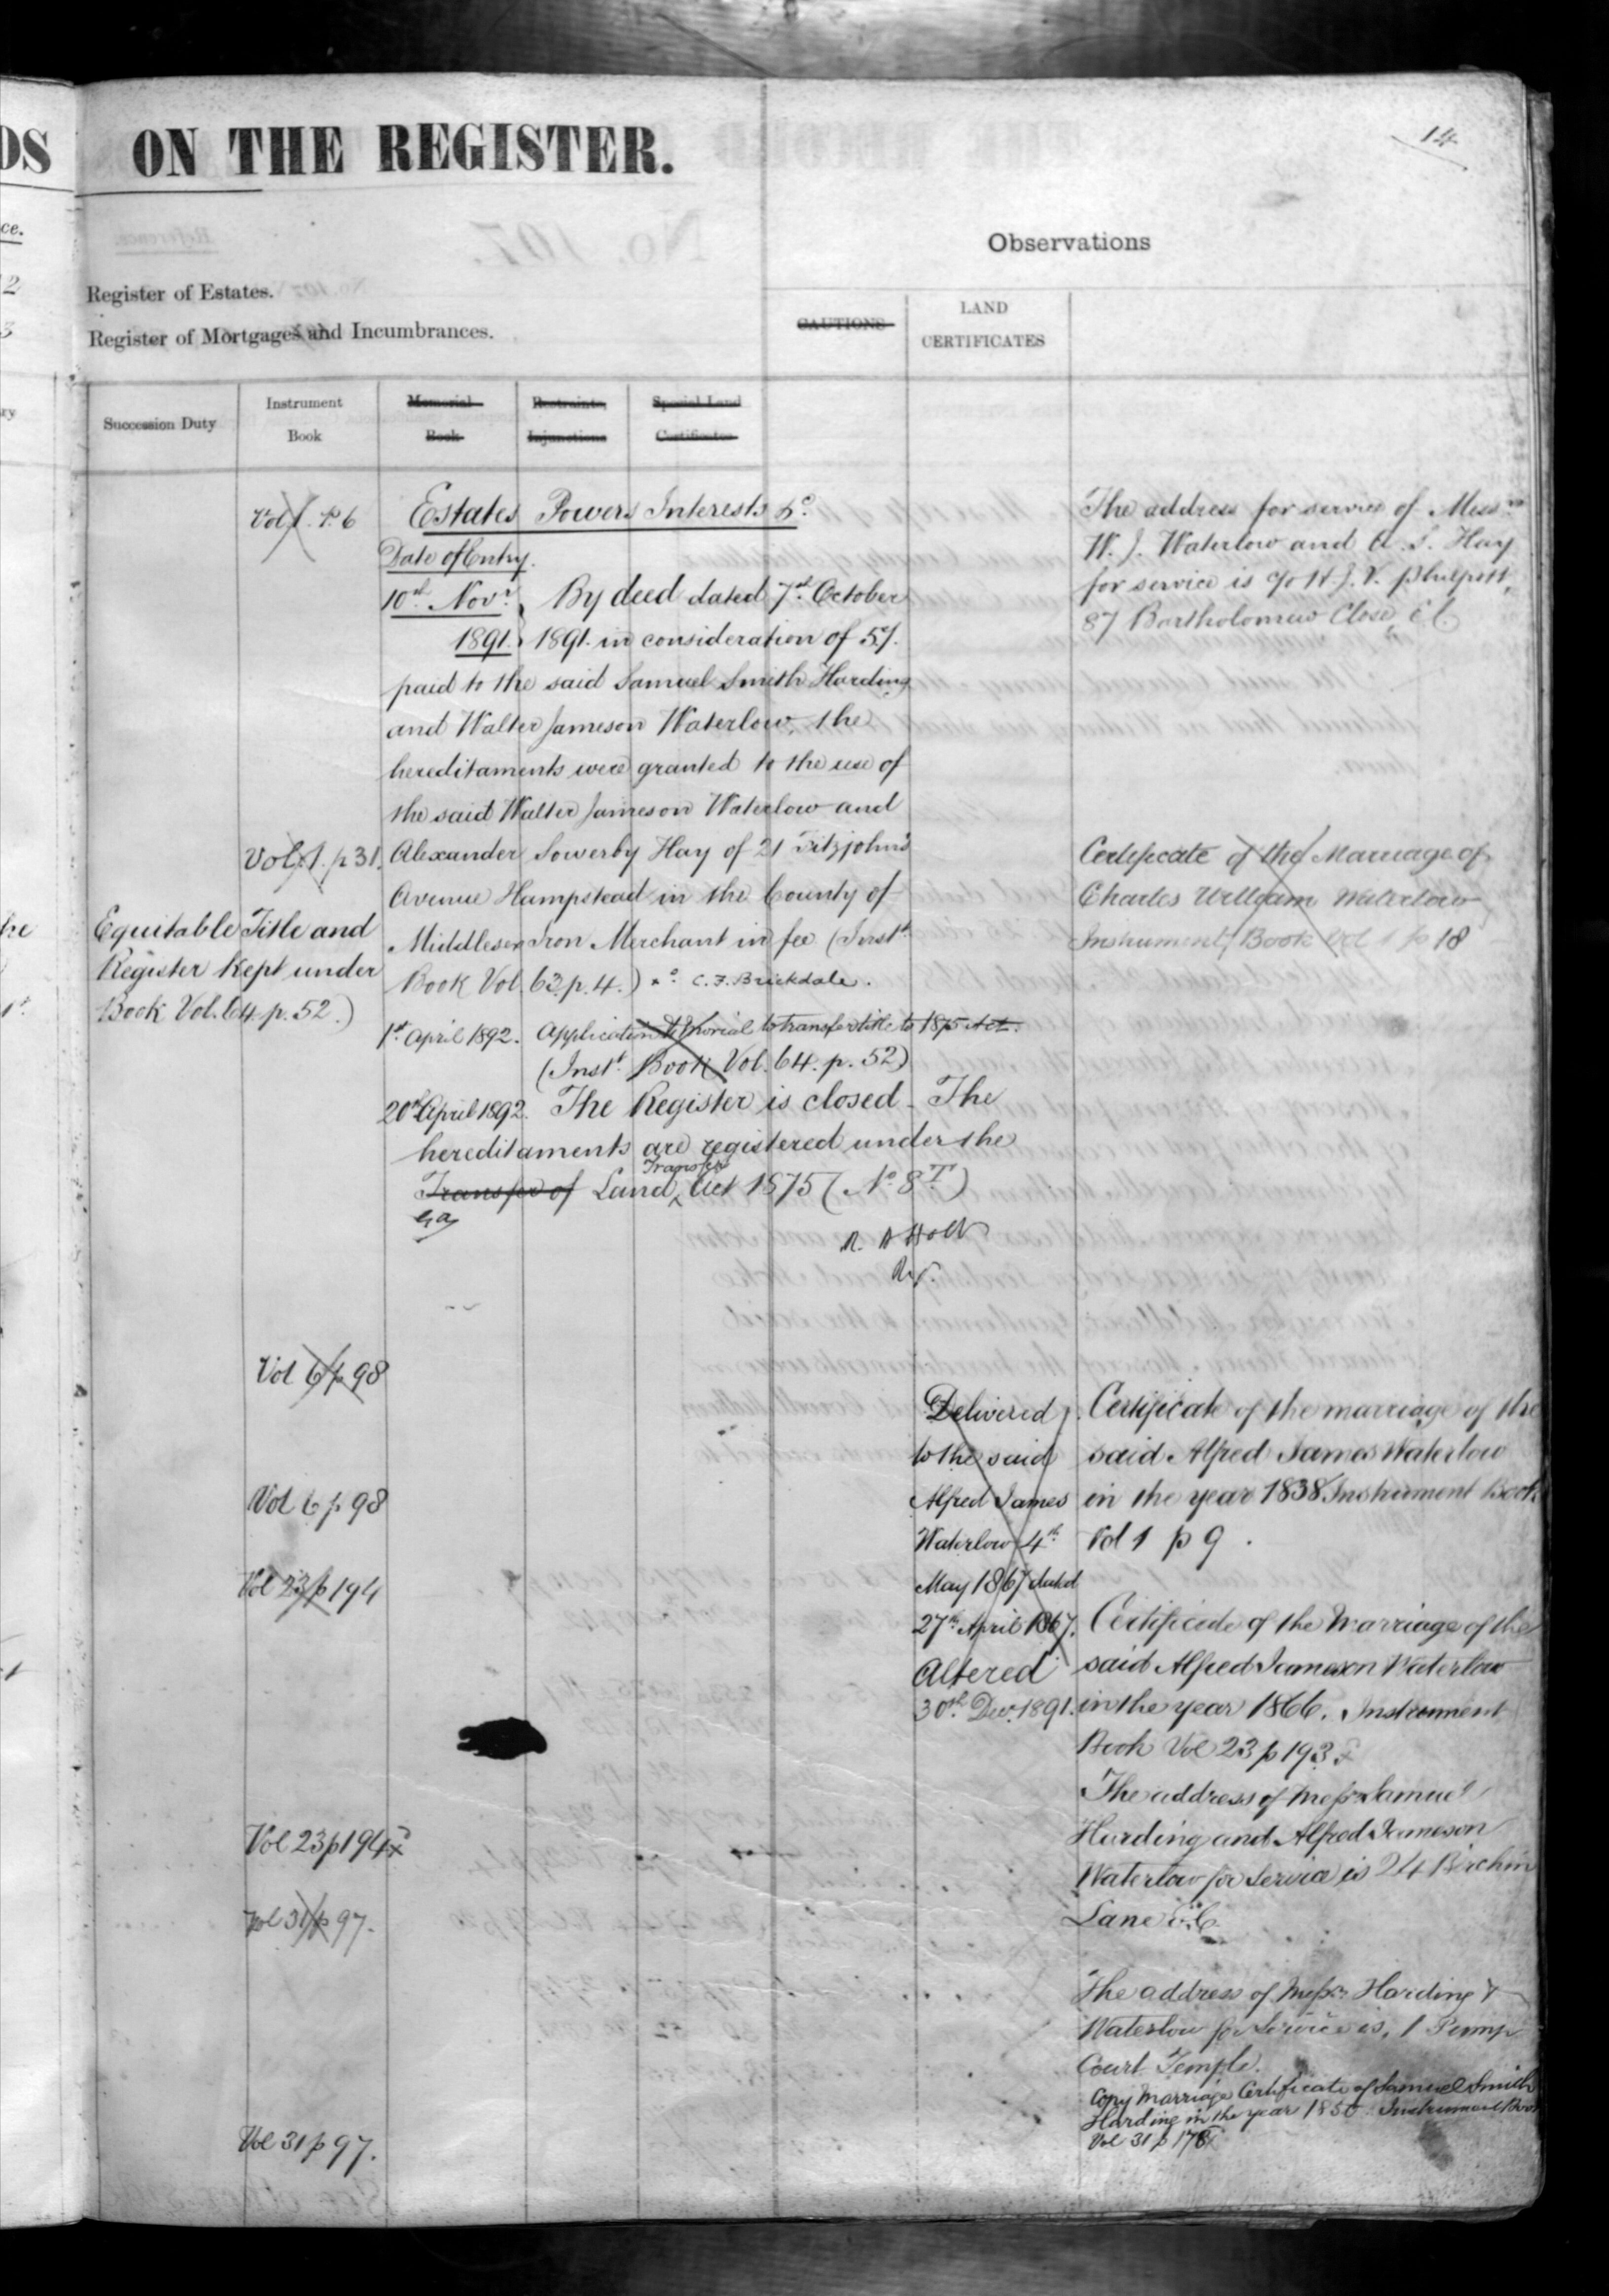 DS ON THE REGISTER.
14
ce.
2
3
Register of Estates.
Register of Mortgages and Incumbrances.
Observations
CAUTIONS
LAND
CERTIFICATES
Succession Duty
Instrument
Book
Memorial
Book
Restraints,
Injunctions
Special Land
Certificates
Vol 1. p. 6
Estates Powers Interests &c.
Date of Entry.
10th Novr.
1891.
By deed dated 7th October
1891. in consideration of 5/.
paid to the said Samuel Smith Harding
and Walter Jameson Waterlow, the
hereditaments were granted to the use of
the said Walter Jameson Waterlow and
Vol. 1. p 31.
Alexander Sowerby Hay of 21 Fitzjohn's
Avenue Hampstead in the County of
Middlesex Iron Merchant in fee (Instt.
Book Vol. 63. p. 4.) C. F. Brickdale.
Equitable Title and
Register kept under
Book Vol. 64. p. 52.)
1st April 1892. Application & Memorial to transfer title to 1875 Act.
(Instt. Book Vol. 64. p. 52)
20th April 1892. The Register is closed. The
hereditaments are registered under the
Transfer of Land Transfer Act 1875 (No. 8 T)
R. H Holt
Vol 6 p 98
Vol 6 p 98
Vol 23 p 194
Vol 23 p 194
Vol 31 p 97.
Vol 31 p 97.
Delivered
to the said
Alfred James
Waterlow 4th
May 1867 dated
27th April 1867.
Altered
30th Decr. 1891.
The address for service of Messrs
W. J. Waterlow and A. S. Hay
for service is c/o H. J. V. Philpott,
87 Bartholomew Close, E C.
Certificate of the Marriage of
Charles William Waterlow
Instrument Book Vol 1 p 18
Certificate of the marriage of the
said Alfred James Waterlow
in the year 1838 Instrument Book
Vol 1 p 9.
Certificate of the Marriage of the
said Alfred Jameson Waterlow
in the year 1866. Instrument
Book Vol 23 p 193
The address of Messrs Samuel
Harding and Alfred Jameson
Waterlow for Service is 24 Birchin
Lane E.C.
The address of Messrs Harding &
Waterlow for Service is, 1 Pump
Court Temple.
Copy Marriage Certificate of Samuel Smith
Harding in the year 1850 Instrument Book
Vol 31 p 178